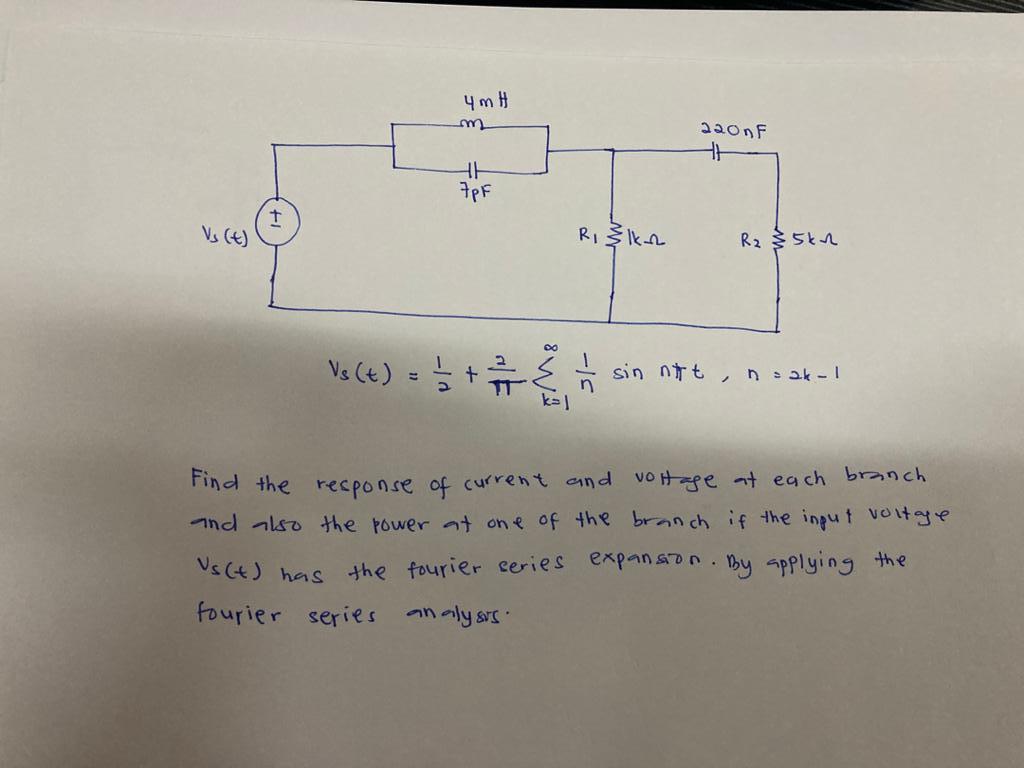 4mH
220nF
7pF
±
Vs(t)
R1 1kΩ
R2 5kΩ
Vs(t) = 1/2 + 2/π ∑ k=1 ∞ 1/n sin nπt , n = 2k-1
Find the response of current and voltage at each branch
and also the power at one of the branch if the input voltage
Vs(t) has the fourier series expansion. By applying the
fourier series analysis.